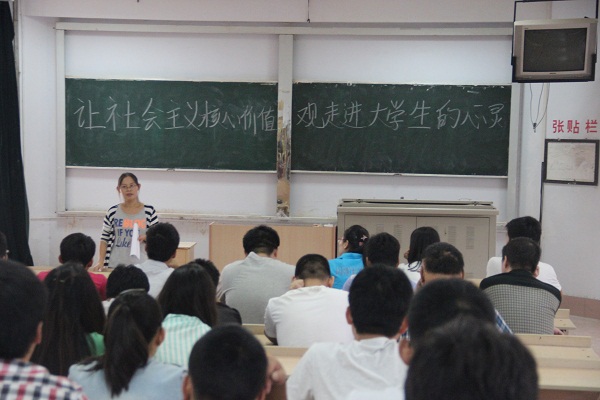 让社会主义核心价值观走进大学生的心灵
张贴栏
RE
IF YOU
Like